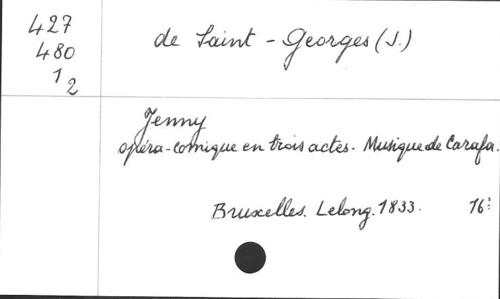 427
480
1
2
de Saint - Georges (J.)
Jenny
opéra-comique en trois actes. Musique de Carafa.
Bruxelles. Lelong. 1833. 16: